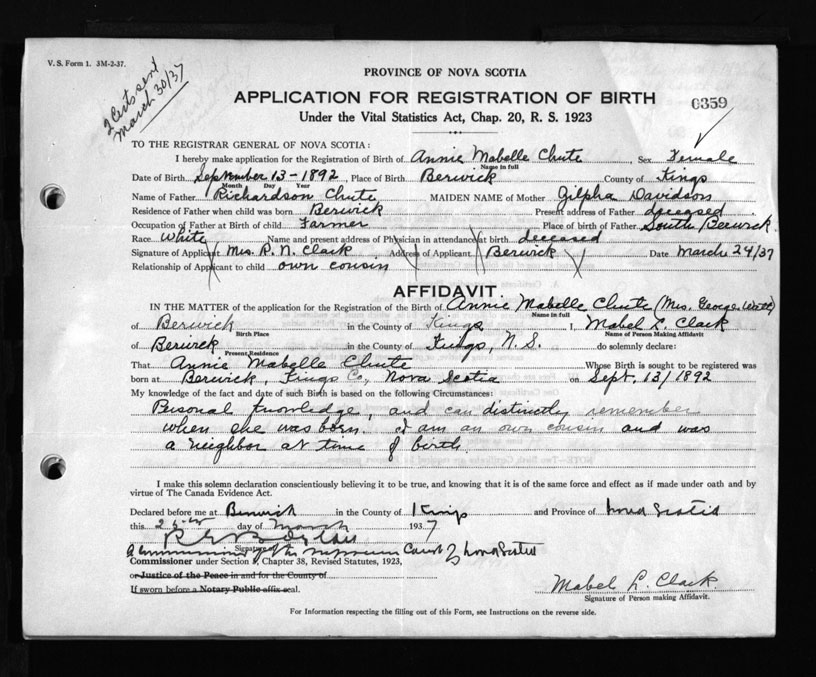 V. S. Form 1. 3M-2-37.
2 Certs sent
March 30/37
PROVINCE OF NOVA SCOTIA
APPLICATION FOR REGISTRATION OF BIRTH
0359
Under the Vital Statistics Act, Chap. 20, R. S. 1923
TO THE REGISTRAR GENERAL OF NOVA SCOTIA:
I hereby make application for the Registration of Birth of Annie Mabelle Chute, Sex Female
Name in full
Date of Birth September 13 - 1892, Place of Birth Berwick County of Kings
Month Day Year
Name of Father Richardson Chute MAIDEN NAME of Mother Zilpha Davidson
Residence of Father when child was born Berwick Present address of Father deceased
Occupation of Father at Birth of child Farmer Place of birth of Father South Berwick
Race White Name and present address of Physician in attendance at birth deceased
Signature of Applicant Mrs. R. N. Clark Address of Applicant Berwick Date March 24/37
Relationship of Applicant to child own cousin
AFFIDAVIT
IN THE MATTER of the application for the Registration of the Birth of Annie Mabelle Chute (Mrs. George
Name in full
of Berwick in the County of Kings I, Mabel L. Clark
Birth Place Name of Person Making Affidavit
of Berwick in the County of Kings, N. S. do solemnly declare:
Present Residence
That Annie Mabelle Chute Whose Birth is sought to be registered was
born at Berwick, Kings Co, Nova Scotia on Sept. 13/1892
My knowledge of the fact and date of such Birth is based on the following Circumstances:
Personal knowledge, and can distinctly remember
when she was born. I am an own cousin and was
a neighbor at time of birth.
I make this solemn declaration conscientiously believing it to be true, and knowing that it is of the same force and effect as if made under oath and by
virtue of The Canada Evidence Act.
Declared before me at Berwick in the County of Kings and Province of Nova Scotia
this day of March 1937
Signature of
A Commissioner of the Supreme Court of Nova Scotia
Commissioner under Section Chapter 38, Revised Statutes, 1923,
or Justice of the Peace in and for the County of
If sworn before a Notary Public affix seal.
Mabel L. Clark
Signature of Person making Affidavit.
For Information respecting the filling out of this Form, see Instructions on the reverse side.